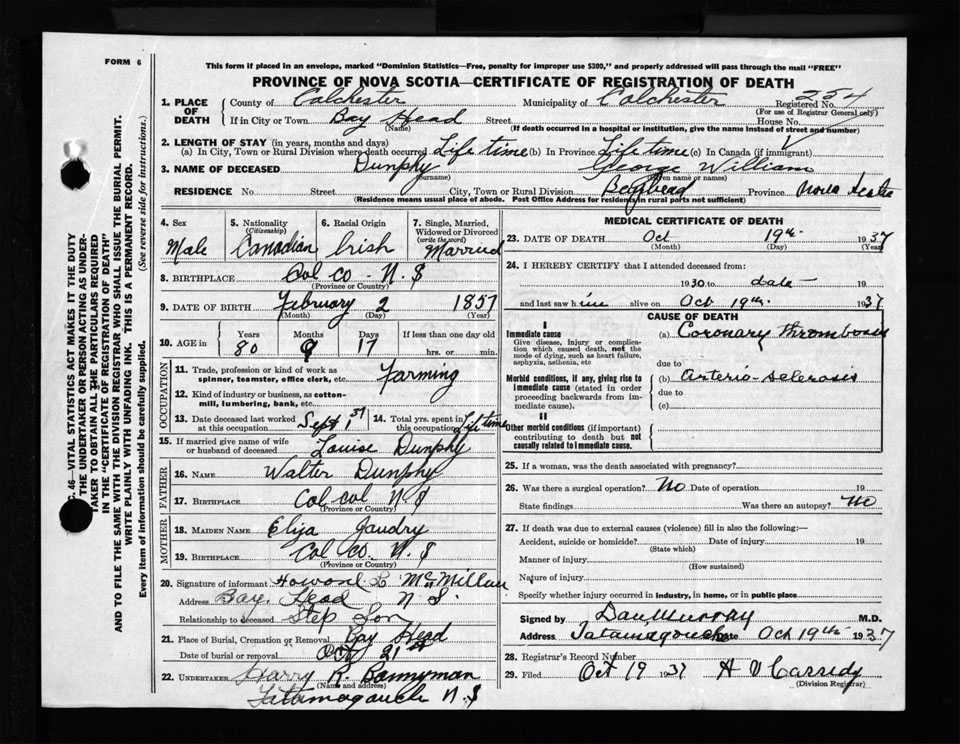 FORM 6
This form if placed in an envelope, marked "Dominion Statistics—Free, penalty for improper use $300," and properly addressed will pass through the mail "FREE"
PROVINCE OF NOVA SCOTIA—CERTIFICATE OF REGISTRATION OF DEATH
1. PLACE OF DEATH County of Colchester Municipality of Colchester Registered No. 254
(For use of Registrar General only)
If in City or Town Bay Head Street House No.
(Name) (If death occurred in a hospital or institution, give the name instead of street and number)
2. LENGTH OF STAY (in years, months and days)
(a) In City, Town or Rural Division where death occurred Life time (b) In Province Life time (c) In Canada (if immigrant)
3. NAME OF DECEASED Dunphy George William
(Surname) (Given name or names)
RESIDENCE No. Street City, Town or Rural Division Bayhead Province Nova Scotia
(Residence means usual place of abode. Post Office Address for residents in rural parts not sufficient)
4. Sex Male
5. Nationality (Citizenship) Canadian
6. Racial Origin Irish
7. Single, Married, Widowed or Divorced (write the word) Married
8. BIRTHPLACE Col Co - N.S
(Province or Country)
9. DATE OF BIRTH February 2 1857
(Month) (Day) (Year)
10. AGE in Years 80 Months 9 Days 17 If less than one day old hrs. or min.
OCCUPATION
11. Trade, profession or kind of work as spinner, teamster, office clerk, etc. Farming
12. Kind of industry or business, as cotton-mill, lumbering, bank, etc.
13. Date deceased last worked at this occupation Sept 1 37
14. Total yrs. spent in this occupation Life time
15. If married give name of wife or husband of deceased Louise Dunphy
FATHER
16. NAME Walter Dunphy
17. BIRTHPLACE Col col N S
(Province or Country)
MOTHER
18. MAIDEN NAME Eliza Gaudry
19. BIRTHPLACE Col Co. N. S
(Province or Country)
20. Signature of informant Howard L McMillan
Address Bay Head N S.
Relationship to deceased Step Son
21. Place of Burial, Cremation or Removal Bay Head
Date of burial or removal Oct 21st
22. UNDERTAKER Harry R. Bonnyman
(Name and address)
Tatamagouche N S
MEDICAL CERTIFICATE OF DEATH
23. DATE OF DEATH Oct 19th 1937
(Month) (Day) (Year)
24. I HEREBY CERTIFY that I attended deceased from:
1930 to date 19
and last saw him alive on Oct 19th 1937
CAUSE OF DEATH
I
Immediate cause (a) Coronary thrombosis
Give disease, injury or complication which caused death, not the mode of dying, such as heart failure, asphyxia, asthenia, etc
due to
Morbid conditions, if any, giving rise to immediate cause (stated in order proceeding backwards from immediate cause).
(b) Arterio-sclerosis
due to
(c)
II
Other morbid conditions (if important) contributing to death but not causally related to immediate cause.
25. If a woman, was the death associated with pregnancy?
26. Was there a surgical operation? No Date of operation 19
State findings Was there an autopsy? No
27. If death was due to external causes (violence) fill in also the following:—
Accident, suicide or homicide? Date of injury 19
(State which)
Manner of injury
(How sustained)
Nature of injury
Specify whether injury occurred in industry, in home, or in public place
Signed by Dan Murray M.D.
Address Tatamagouche Date Oct 19th 1937
28. Registrar's Record Number
29. Filed Oct 19 1937 H V Cassidy
(Division Registrar)
C. 46—VITAL STATISTICS ACT MAKES IT THE DUTY
THE UNDERTAKER OR PERSON ACTING AS UNDER-
TAKER TO OBTAIN ALL THE PARTICULARS REQUIRED
IN THE "CERTIFICATE OF REGISTRATION OF DEATH"
AND TO FILE THE SAME WITH THE DIVISION REGISTRAR WHO SHALL ISSUE THE BURIAL PERMIT.
WRITE PLAINLY WITH UNFADING INK. THIS IS A PERMANENT RECORD.
Every item of information should be carefully supplied. (See reverse side for instructions.)